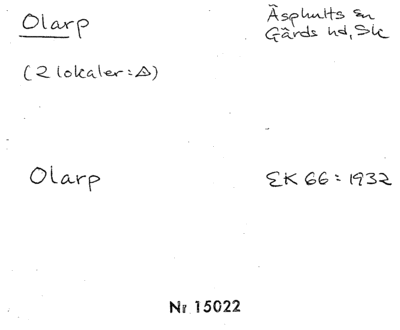 Olarp
Äsphults sn
Gärds hd, Sk
(2 lokaler: △)
Olarp
EK 66: 1932
Nr 15022